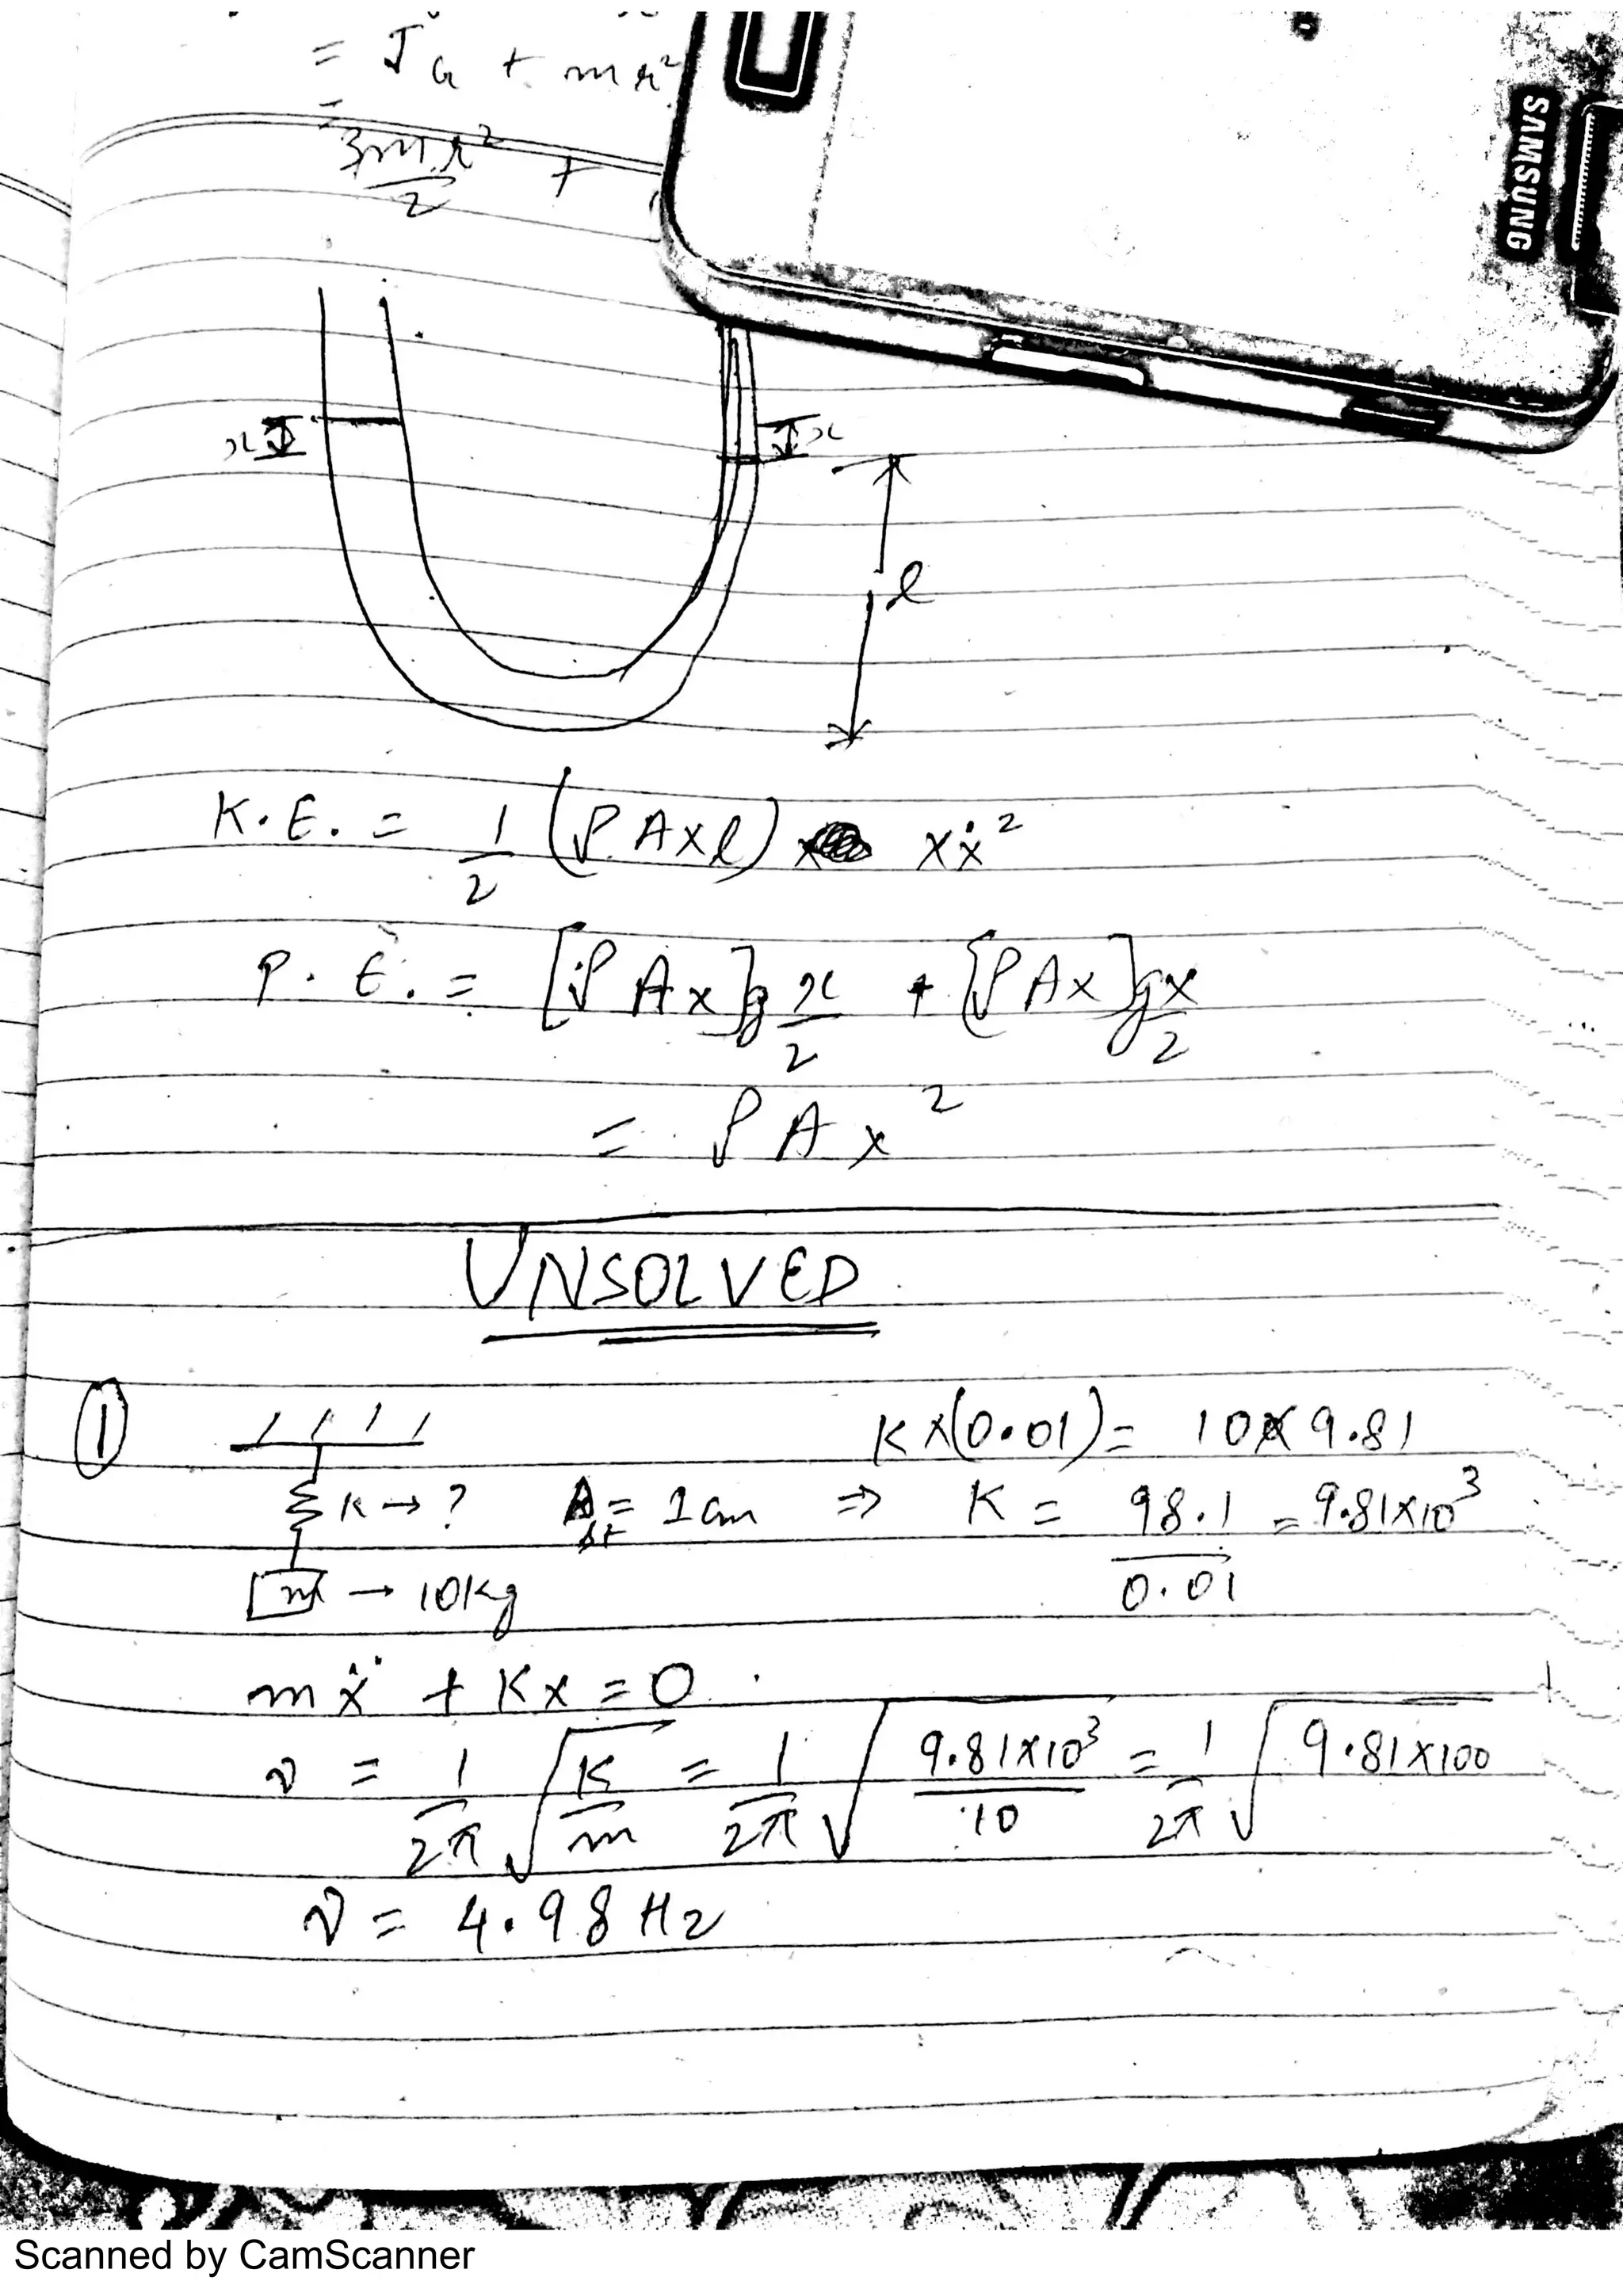 = J_G + mr²
= 3mr²/2 +
SAMSUNG
x x
l
K.E. = 1/2 (ρ A×l) × ẋ²
P.E. = [ρ A x]g x/2 + [ρ A x]g x/2
= ρ A x²
UNSOLVED
① K×(0.01) = 10×9.81
K → ? Δst = 1cm ⇒ K = 98.1/0.01 = 9.81×10³
m → 10kg
mẍ + Kx = 0
ν = 1/2π √(K/m) = 1/2π √(9.81×10³/10) = 1/2π √(9.81×100)
ν = 4.98 Hz
Scanned by CamScanner